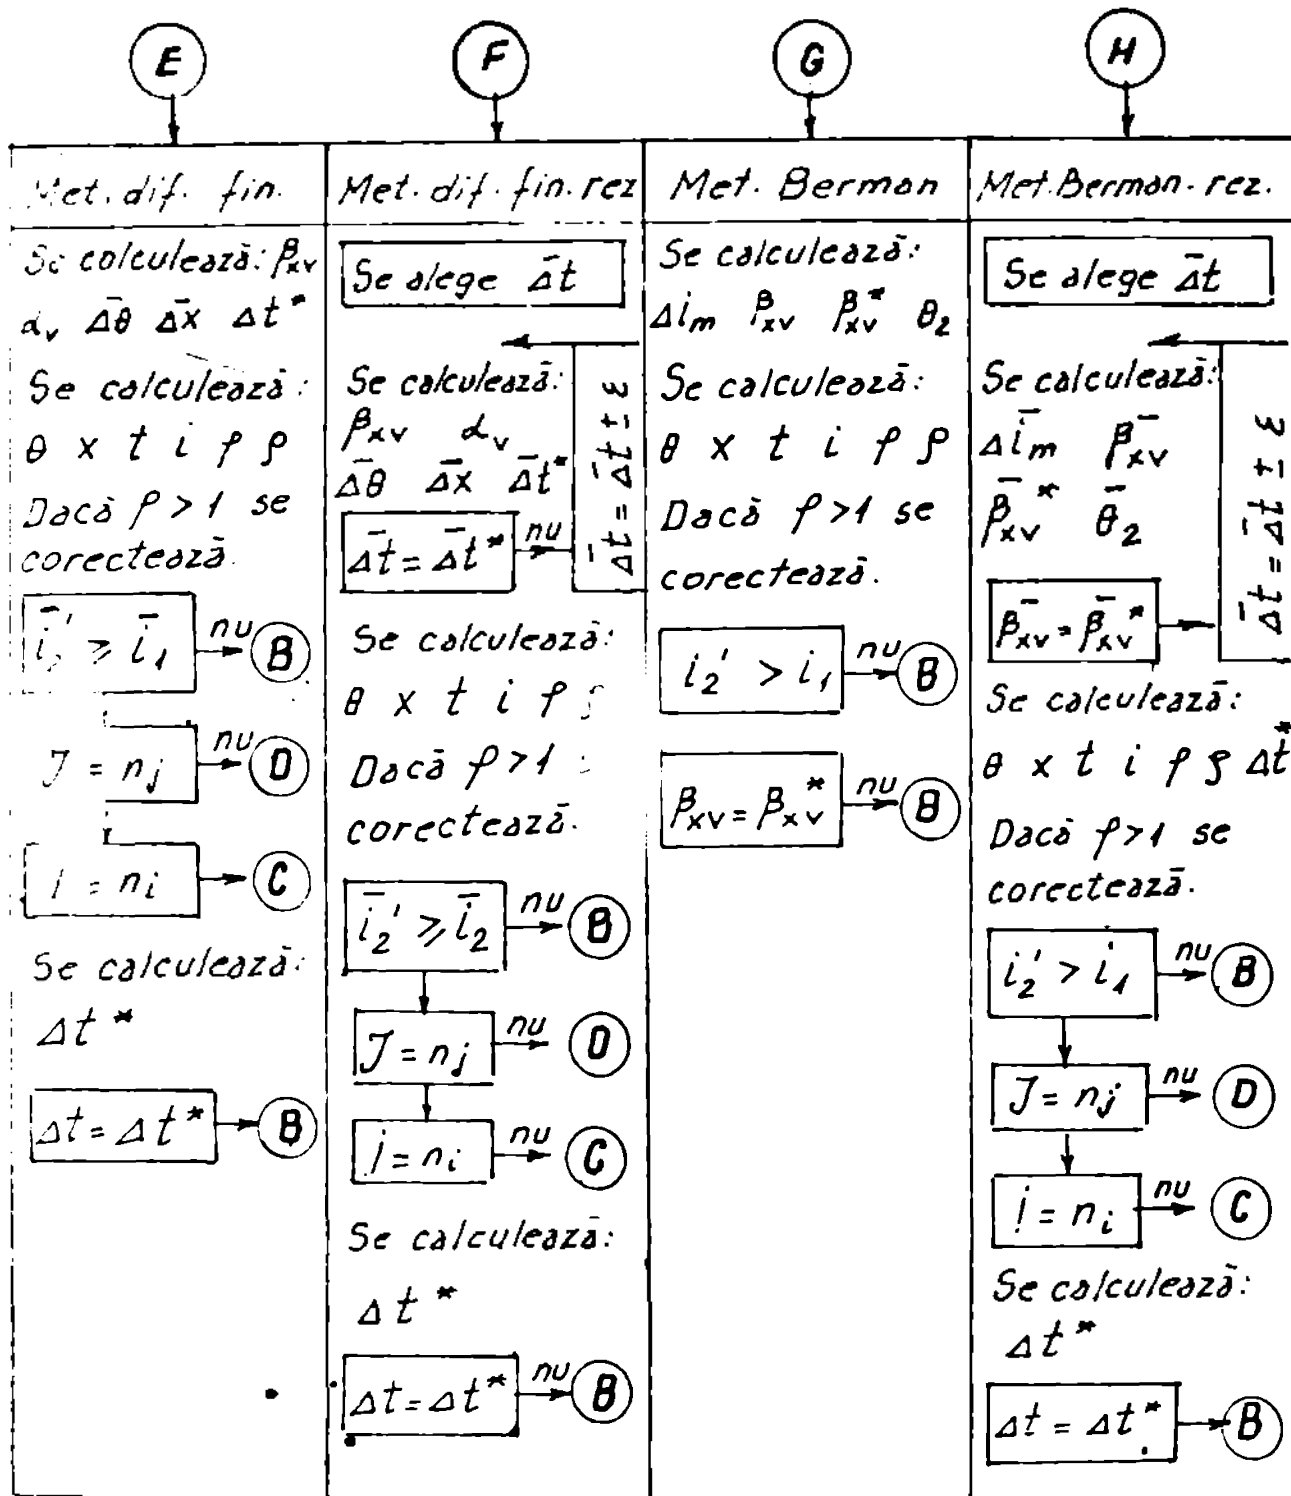 E
Met. dif. fin.
Se calculează: βxv
αv Δ̄θ Δ̄x Δt*
Se calculează:
θ x t i φ ρ
Dacă φ > 1 se
corectează.
ī2' ≥ ī1 nu B
J = nj nu D
I = ni C
Se calculează:
Δt*
Δt = Δt* B
F
Met. dif. fin. rez
Se alege Δ̄t
Se calculează:
βxv αv
Δ̄θ Δ̄x Δ̄t*
Δ̄t = Δ̄t* nu
Δ̄t = Δ̄t ± ε
Se calculează:
θ x t i φ ρ
Dacă φ > 1
corectează.
ī2' ≥ ī2 nu B
J = nj nu D
I = ni nu C
Se calculează:
Δt*
Δt = Δt* nu B
G
Met. Berman
Se calculează:
Δim βxv βxv* θ2
Se calculează:
θ x t i φ ρ
Dacă φ > 1 se
corectează.
i2' > i1 nu B
βxv = βxv* nu B
H
Met. Berman. rez.
Se alege Δ̄t
Se calculează:
Δīm β̄xv
β̄xv* θ̄2
β̄xv = β̄xv*
Δ̄t = Δ̄t ± ε
Se calculează:
θ x t i φ ρ Δt*
Dacă φ > 1 se
corectează.
i2' > i1 nu B
J = nj nu D
I = ni nu C
Se calculează:
Δt*
Δt = Δt* B